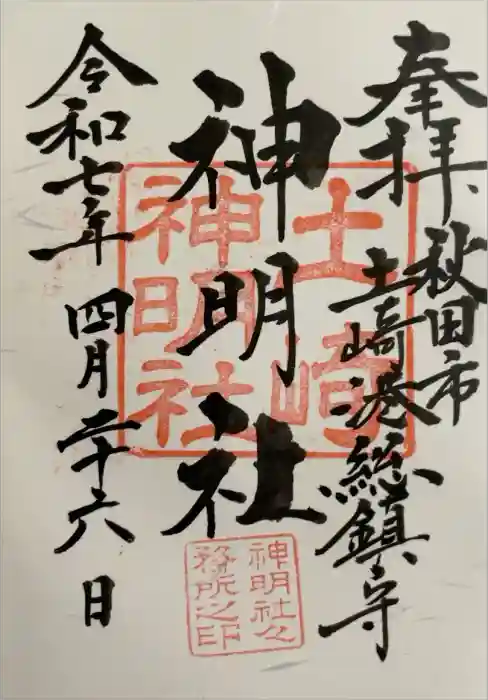 奉拝
秋田市
土崎港總鎮守
神明社
令和七年 四月二十六日
土崎
神明社
神明社
務所之印